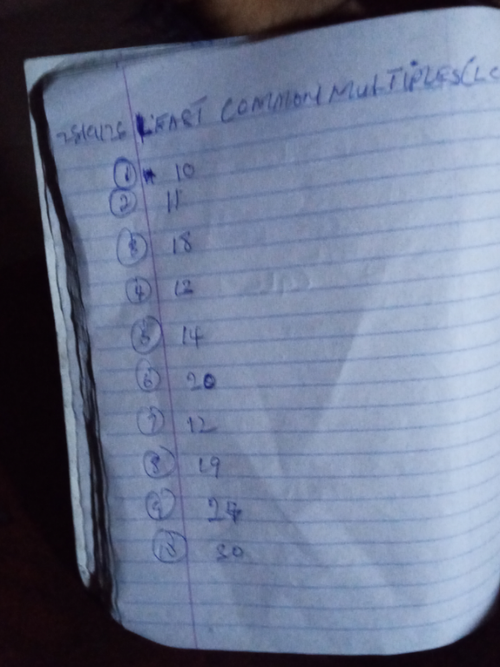 LEAST COMMON MULTIPLES (LC
① 10
② 11
③ 18
④ 12
⑤ 14
⑥ 20
⑦ 12
⑧ 19
⑨
⑩